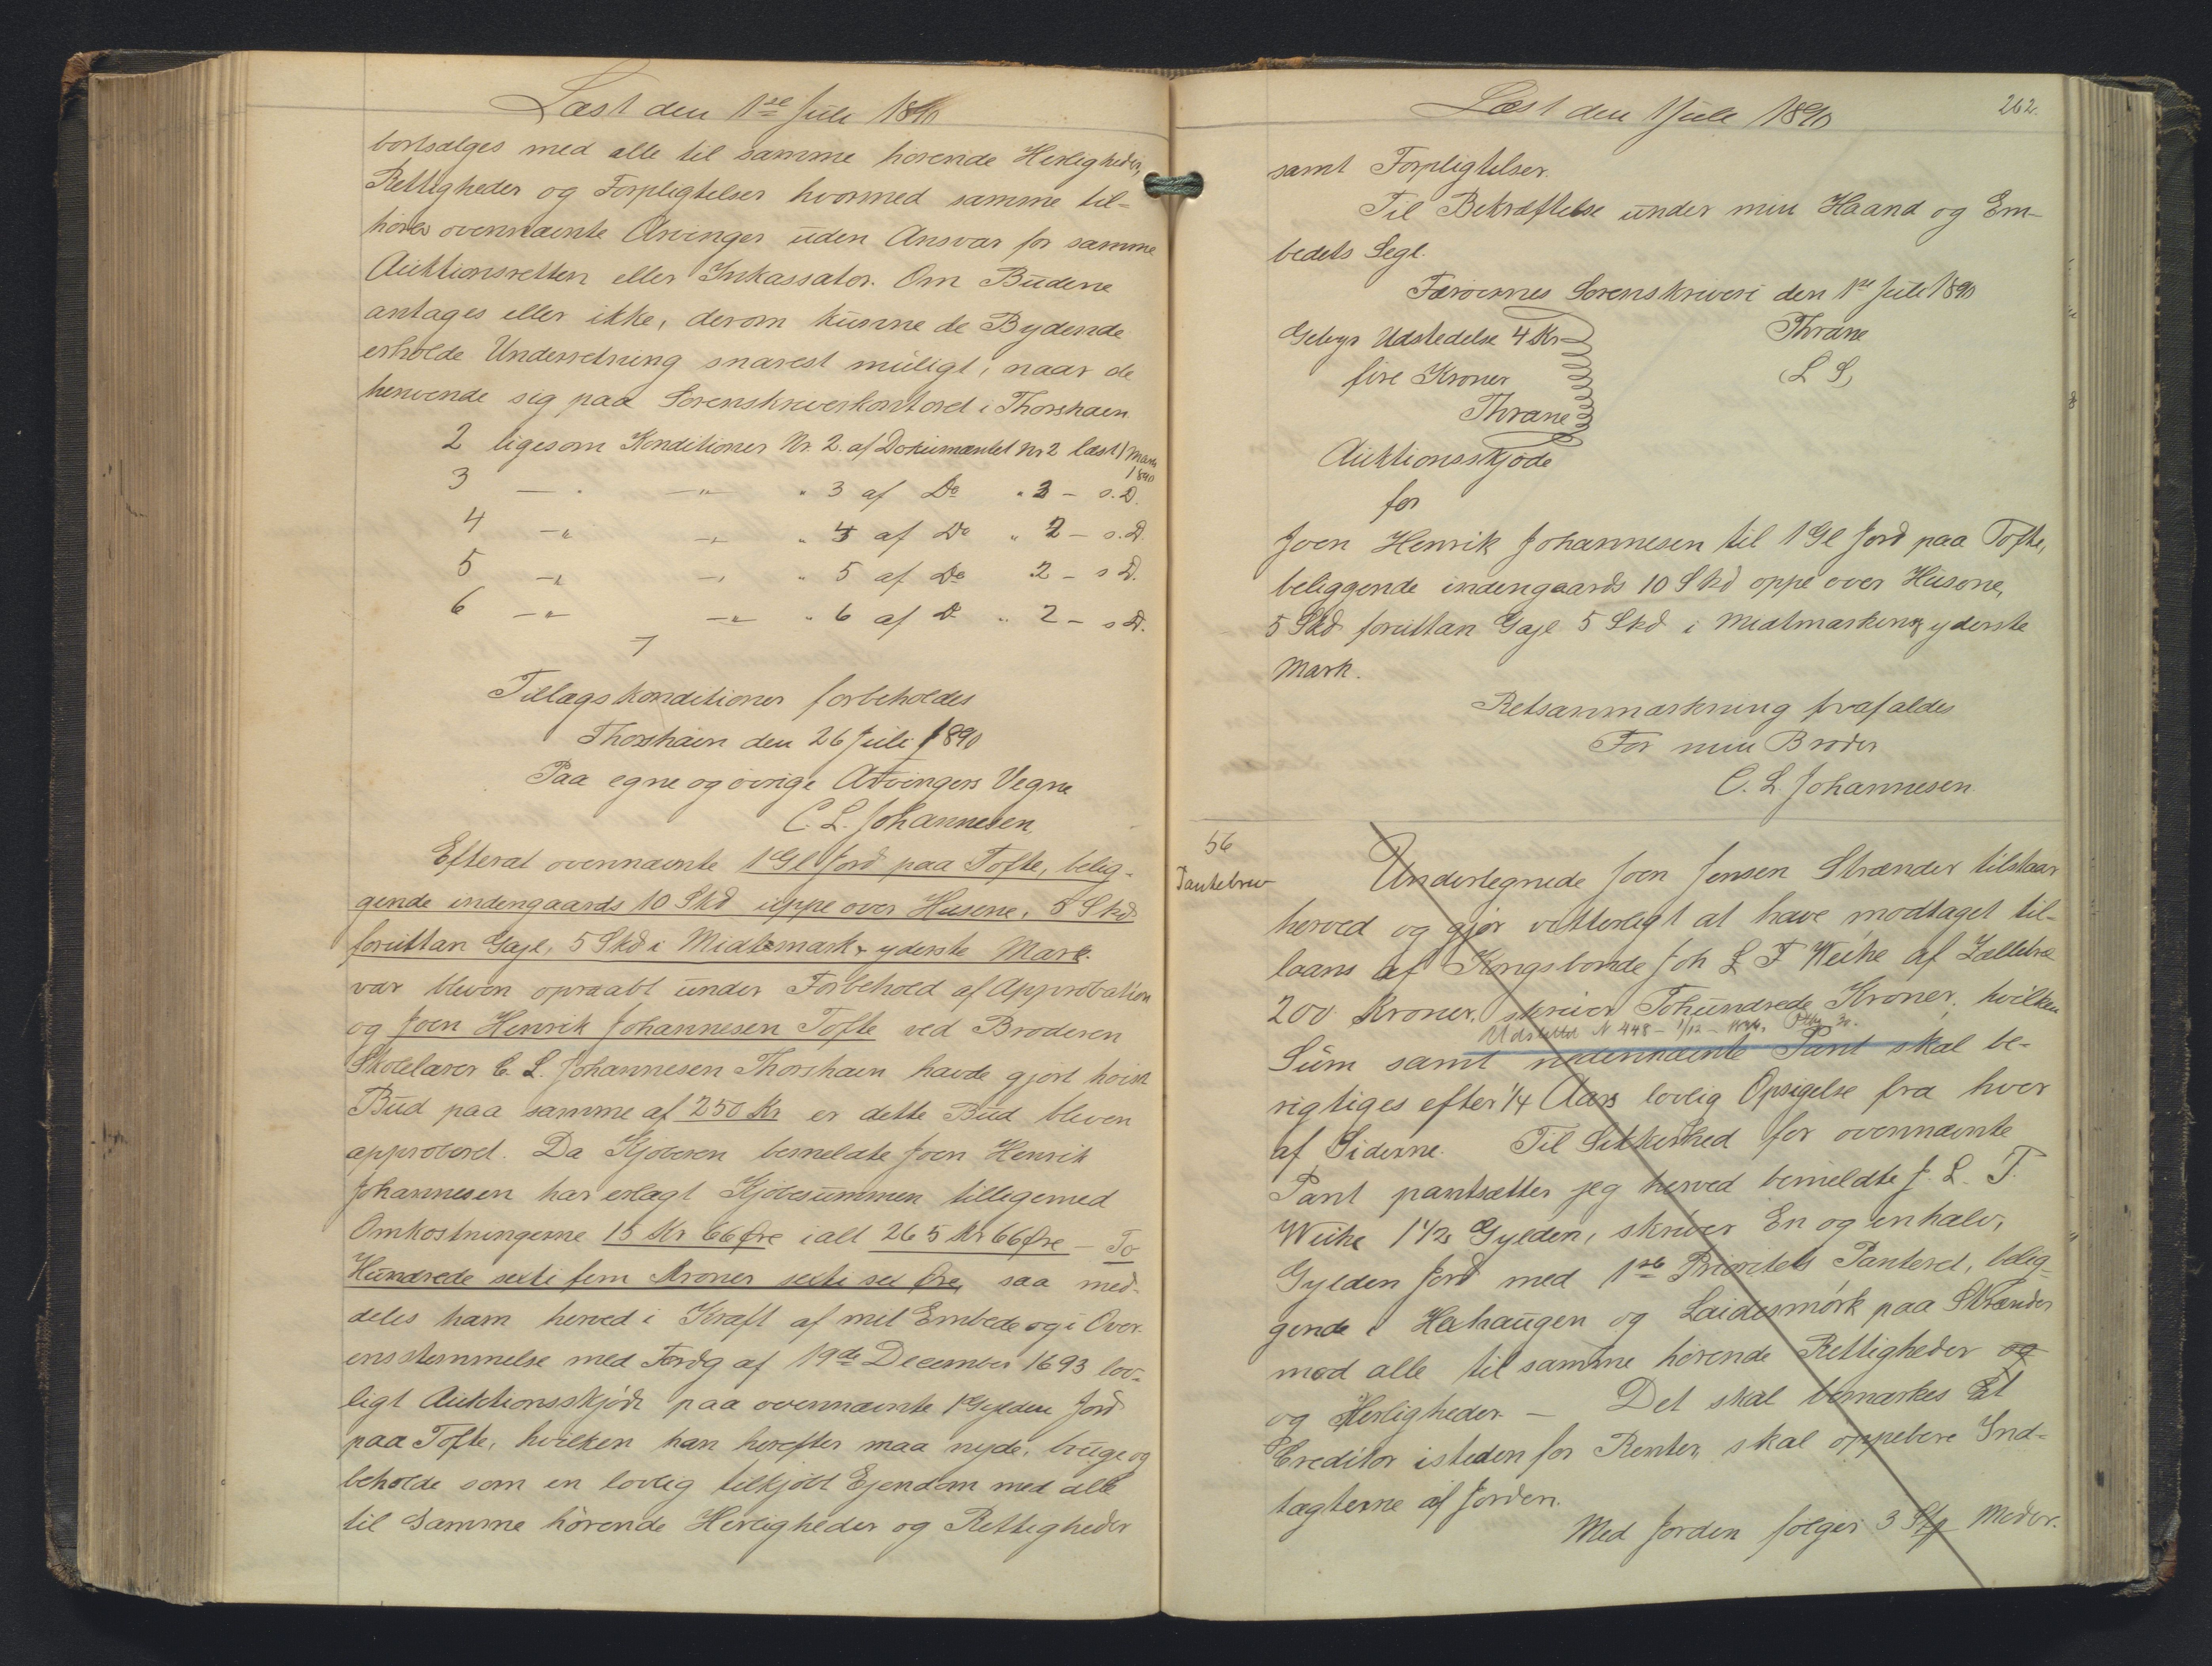 Læst den 1ste Juli 1890
bortsælges med alle til samme hørende Herligheder,
Rettigheder og Forpligtelser hvormed samme til-
hører ovennævnte Arvinger uden Ansvar for samme
Auktionsretten eller Inkassator. Om Budene
antages eller ikke, derom kunne de Bydende
erholde Underretning snarest muligt, naar de
henvende sig paa Sorenskriverkontoret i Thorshavn.
2 ligesom Konditioner Nr. 2. af Dokumentet Nr 2 læst 1 Marts
1890
3 — " — " — " 3 af Do " 2 — s. D.
4 — " — " — " 4 af Do " 2 — s. D.
5 — " — " — " 5 af Do 2 — s D.
6 — " — " — " 6 af D " 2 — s D.
7
Tillægskonditioner forbeholdes
Thorshavn den 26 Juli 1890
Paa egne og øvrige Arvingers Vegne
C. L. Johannesen
Efterat ovennævnte 1 Gl Jord paa Tofte, belig-
gende indengaards 10 Skd uppe over Husene, 5 Skd
foruttan Gajl, 5 Skd i Midtmark & yderste Mark.
var bleven opraabt under Forbehold af Approbation
og Joen Henrik Johannesen Tofte ved Broderen
Skolelærer C. L. Johannesen Thorshavn havde gjort høist
Bud paa samme af 250 Kr er dette Bud bleven
approberet. Da Kjøberen bemeldte Joen Henrik
Johannesen har erlagt Kjøbesummen tilligemed
Omkostningerne 15 Kr 66 Øre ialt 265 Kr 66 Øre — To
Hundrede sexti fem Kroner sexti sex Øre, saa med-
deles ham herved i Kraft af mit Embede og i Over-
ensstemmelse med Fordg af 19de December 1693 lov-
ligt Auktionsskjøde paa ovennævnte 1 Gylden Jord
paa Tofte, hvilken han herefter maa nyde, bruge og
beholde som en lovlig tilkjøbt Ejendom med alle
til samme hørende Herligheder og Rettigheder
Læst den 1 Juli 1890
262.
samt Forpligtelser.
Til Bekræftelse under min Haand og Em-
bedets Segl.
Færøernes Sorenskriveri den 1ste Juli 1890
Gebyr Udstedelse 4 Kr
Thrane
fire Kroner
(L S)
Thrane
Auktionsskjøde
for
Joen Henrik Johannesen til 1 Gl Jord paa Tofte,
beliggende indengaards 10 Skd oppe over Husene,
5 Skd foruttan Gajl 5 Skd i Midtmarken & yderste
Mark.
Retsanmærkning frafaldes
For min Broder
C. L. Johannesen.
56
Pantebrev
Undertegnede Joen Jensen Strænder tilstaar
herved og gjør vitterligt at have modtaget til-
laans af Kongsbonde Joh L F Weihe af
200 Kroner, skriver Tohundrede Kroner, hvilken
Udslettet N 448 — 1/12 —
Sum samt nedennævnte Pant skal be-
rigtiges efter 1/4 Aars lovlig Opsigelse fra hver
af Siderne. Til Sikkerhed for ovennævnte
Pant pantsætter jeg herved bemeldte J. L. F.
Weihe 1 1/2 Gylden, skriver En og en halv,
Gylden Jord med 1ste Prioritets Panteret, belig-
gende i Hahaugen og Laidesmørk paa Strænder
med alle til samme hørende Rettigheder og
og Herligheder. — Det skal bemærkes at
Creditor istedenfor Renter, skal oppebere Ind-
tægterne af Jorden.
Med Jorden følger 3 Stp Møder.